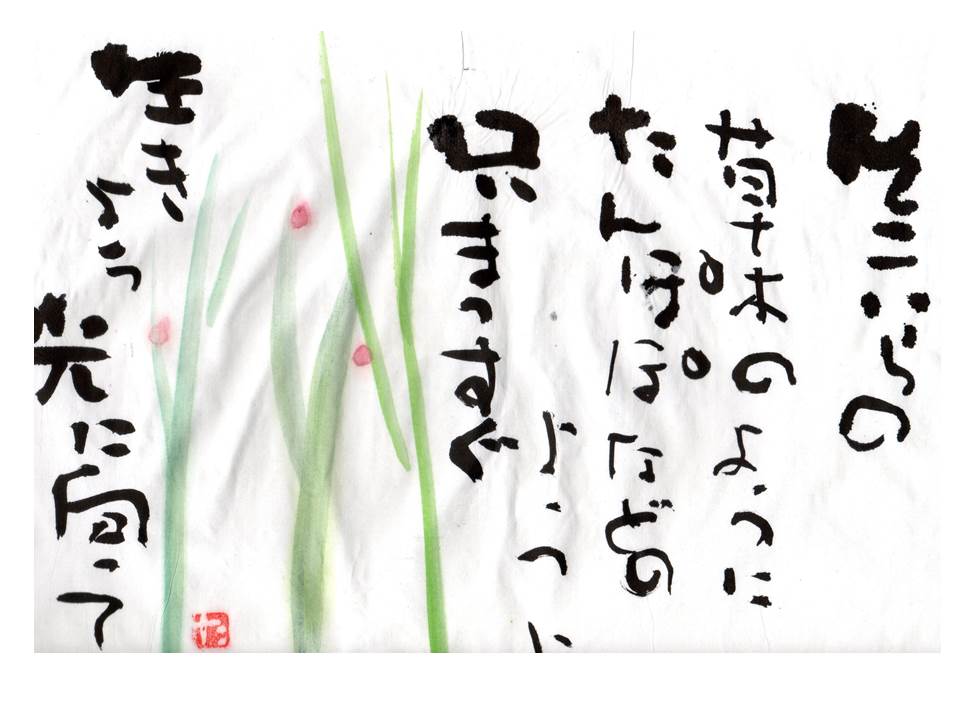 そこいらの
草木のように
たんぽぽなどの
ように
只まっすぐ
生きよう
光に向って